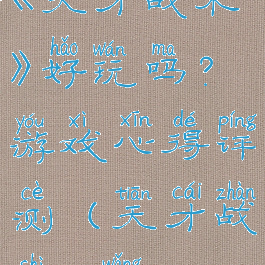 《天才战术
hǎo wán ma
》好玩吗？
yóu xì xīn dé píng
游戏心得评
cè tiān cái zhàn
测（天才战